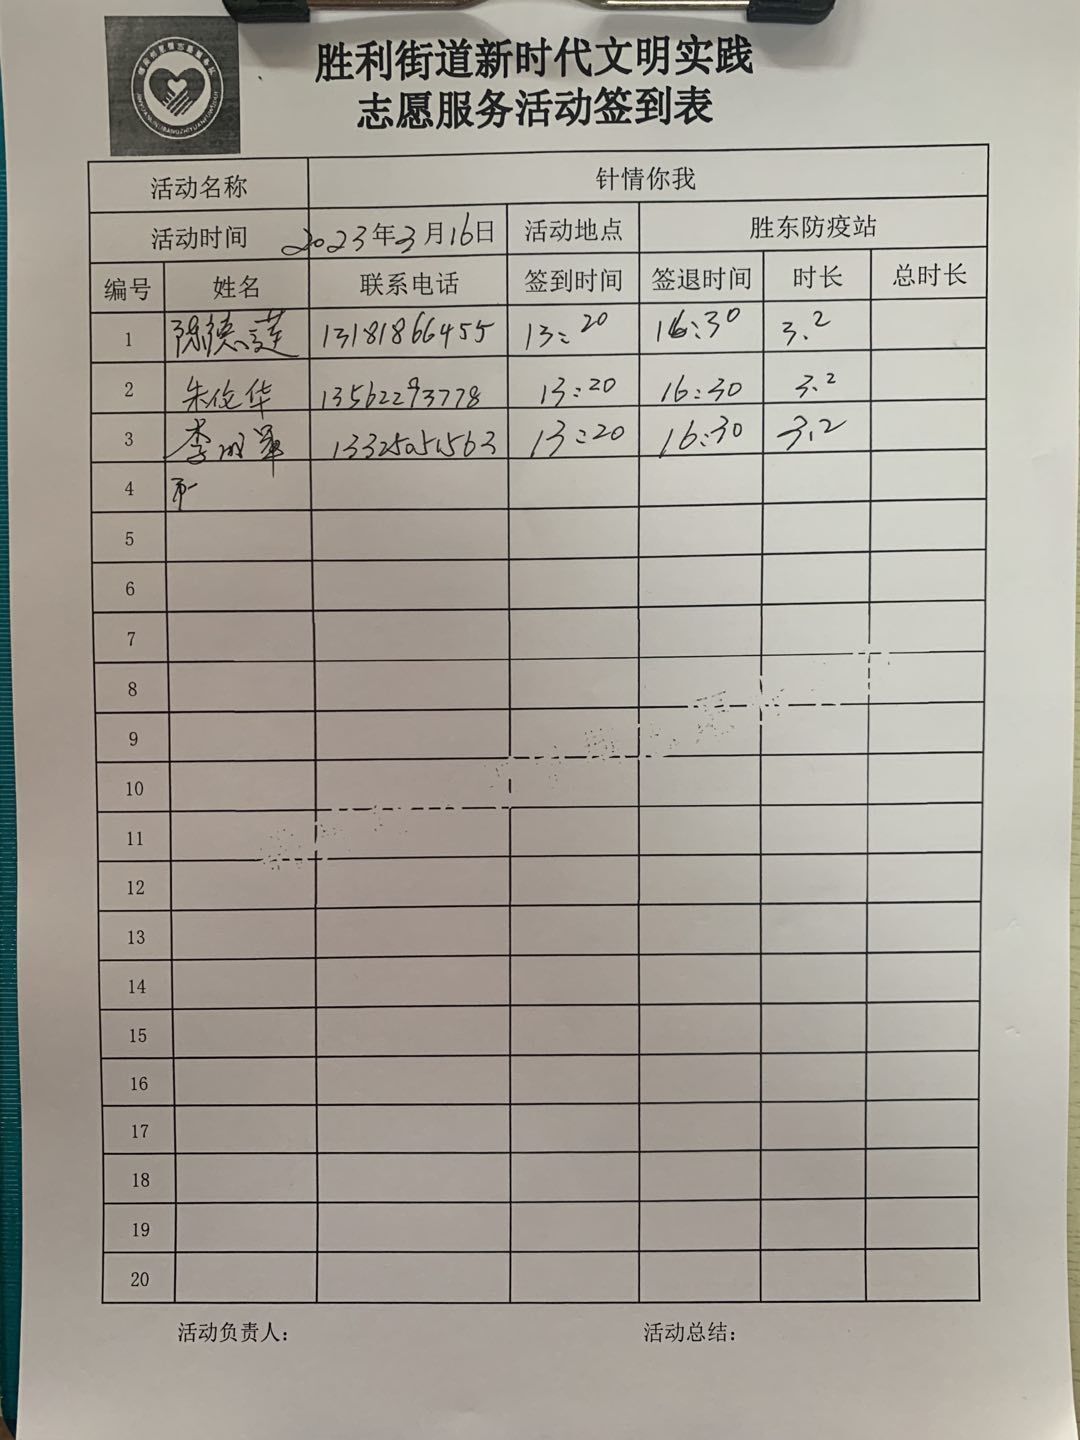 胜利街道新时代文明实践
志愿服务活动签到表
活动名称 针情你我
活动时间 2023年3月16日 活动地点 胜东防疫站
编号 姓名 联系电话 签到时间 签退时间 时长 总时长
1 陈德莲 13181866455 13:20 16:30 3.2
2 朱伦华 13562293778 13:20 16:30 3.2
3 李 13325051563 13:20 16:30 3.2
4
5
6
7
8
9
10
11
12
13
14
15
16
17
18
19
20
活动负责人: 活动总结: